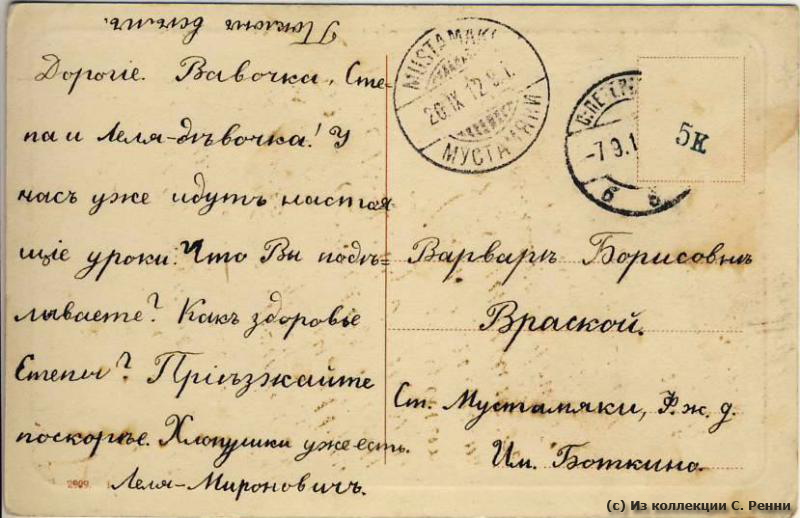 Поклонъ всѣмъ.
Дорогіе. Вавочка, Сте-
па и Леля-дѣвочка! У
насъ уже идутъ настоя
щіе уроки. Что Вы подѣ=
лываете? Какъ здоровье
Степы? Пріѣзжайте
поскорѣе. Хлопушки уже есть.
Леля-Мироновичъ.
MUSTAMÄKI
20.IX.12.9.1.
МУСТАМЯКИ
С.ПЕТЕР
-7.9.1
6 5
5к
Варварѣ Борисовнѣ
Враской.
Ст. Мустамяки, Ф.ж.д.
Им. Боткина.
2909.
(с) Из коллекции С. Ренни